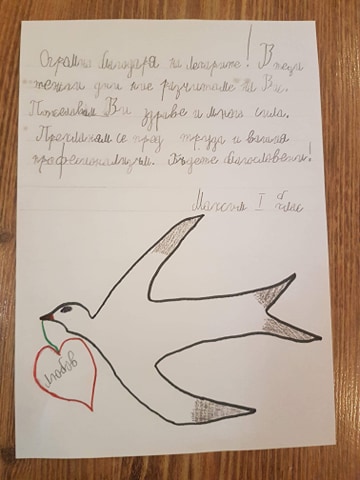 Огромна благодаря на лекарите! В тези
тежки дни ние разчитаме на Вас.
Пожелавам Ви здраве и много сила.
Прекланям се пред труда и вашия
професионализъм. Бъдете благословени!
Максим I б клас
любов